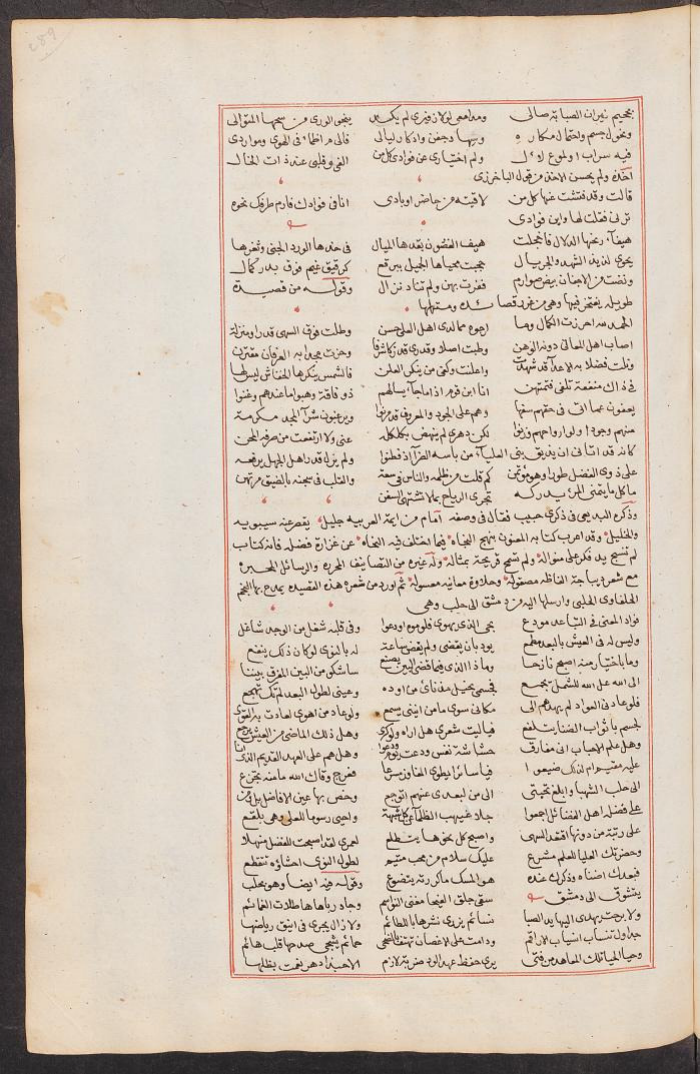 ٢٨٩
بجحيم نيران الصبابة صالى ومدامعى لولا زفيرى لم يكن ينجو الورى من سحها المتوالى
ونحول جسم واحتمال مكاره وسهاد جفن وادكار ليالى فالى م اظماء فى الهوى ومواردى
فيه سراب او لموع لآل ولم اختيارى عن فوادى كل من القى وقلبى عند ذات الخال
اخذه ولم يحسن الاخذ من قول الباخرزى
قالت وقد فتشت عنها كل من لاقيته من حاضر او بادى انا فى فوادك فارم طرفك نحوه
ترنى فقلت لها واين فوادى
هيفاء رنحها الدلال فاخجلت هيف الغصون بقدها الميال فى خدها الورد الجنى وثغرها
يحوى لذيذ الشهد والجريال حجبت محياها الجميل ببرقع كرقيق غيم فوق بدر كمال
ونضت من الاجفان بيض صوارم فغزت بهن ولم تناد نزال وقوله من قصيدة
طويله يفتخر فيها وهى من غرر قصائده ومستهلها
الحمد لله احرزت الكمال وما ارجوه ممالدى اهل العلى حسن وطلت فوق السهى قدرا ومنزلة
اصاب اهل المعالى دونه الوهن وطبت اصلا وقدرى قد زكا شرفا وحزت مجدا به العرفان مقترن
ونلت فضلا به الاعدآء قد شهدت واعلنت وكفى من ينكر العلن فالشمس ينكرها الخفاش ليس لها
فى ذاك منقصة تلفى فتمتهن انا ابن قوم اذا ما جآء يسالهم ذو فاقة وهبوا ما عندهم وغنوا
يعفون عمن اتى فى حقهم سفها وهم على الجود والمعروف قد مرنوا ويرغبون شرآء المجد مكرمة
منهم وجودا ولو ارواحهم وزنوا لكن دهرى لم ينهض بكلكله عنى ولا ارتفعت من صرفه المحن
كانه قد اتانى ان يذيق بنى العليآء من باسه الضرآء اذ فطنوا ولم يزل قدر اهل الجهل يرفعه
على ذوى الفضل طورا وهو مؤتمن كم قلت من ظلمه والناس فى سعة والقلب فى سجنه بالضيق مرتهن
ما كل ما يتمنى المرء يدركه تجرى الرياح بما لا تشتهى السفن
وذكره البديعى فى ذكرى حبيب فقال فى وصفه امام من ائمة العربيه جليل يقصر عنه سيبويه
والخليل وقد اعرب كتابه المعنون بنهج النجاه فيما اختلف فيه النحاه عن غزارة فضله فانه كتاب
لم تنسج يد فكر على منواله ولم تسمح قريحة بمثاله وله غيره من التصانيف المحرره والرسائل المحبره
مع شعر ديباجة الفاظه مصقوله وحلاوة معانيه معسوله ثم اورد من شعره هذه القصيده يمدح بها النجم
الحلفاوى الحلبى وارسلها اليه من دمشق الى حلب وهى
فواد المعنى فى التباعد مودع بحى الذى يهوى فلوموه او دعوا وفى قلبه شغل من الوجد شاغل
وليس له فى العيش بالبعد مطمع يود بان يقضى ولم يقض ساعة له بالنوى لو كان ذلك ينفع
وما باختيار منه اصبح نازحا وما ذا الذى فيما قضى البين يصنع ساشكو من البين المفرق بيننا
الى الله على الله للشمل يجمع فجسمى نحيل مذ نأى من اوده وعينى لطول البعد لم تك تهجع
فلو عادنى العواد لم يهدهم الى مكانى سوى ما من انينى يسمع ولو عاد من اهوى لعادت به القوى
لجسم باثواب الضنا يتلفع فيا ليت شعرى هل اراه ولو كرى وهل ذلك الماضى من العيش يرجع
وهل علم الاحباب انى مفارق حشاشة نفس ودعت يوم ودعوا وهل هم على العهد القديم الذى انا
عليه مقيم ام لذاك ضيعوا فيا سائرا يطوى المفاوز مسرعا فعرج وقاك الله ما منه تجزع
الى حلب الشهبا وابلغ تحيتى الى من لبعدى عنهم اتوجع وخص بها عين الافاضل بل ومن
على فضله اهل الفضائل اجمعوا جلا غيهب الظلمآء عن كل شبهة واحيى رسوما للعلى وهى بلقع
على رتبة من دونها افقد السهى واصبح كل نحوها يتطلع لعمرى لقد اصبحت للفضل منهلا
وحضرتك العليا للعلم مشرع عليك سلام من محب متيم لطول النوى احشاؤه تتقطع
فبعدك اضناه وذكرك عنده هو المسك ما كررته يتضوع وقوله فيه ايضا وهو بحلب
يتشوق الى دمشق سقى جلق الفيحا مغنى النواسم وجاد رباها هاطلات الغمائم
ولا برحت يهدى اليها يد الصبا نسائم يزرى نشرها باللطائم ولا زال يجرى فى انيق رياضها
جداول تنساب انسياب الاراقم ودامت على الاغصان تهتف بالضحى حمائم يشجى صدحها قلب هائم
وحيا الحيا تلك المعاهد من فتى يرى حفظ عهد الود ضربة لازم الا حبذا دهر نعمت بظلها